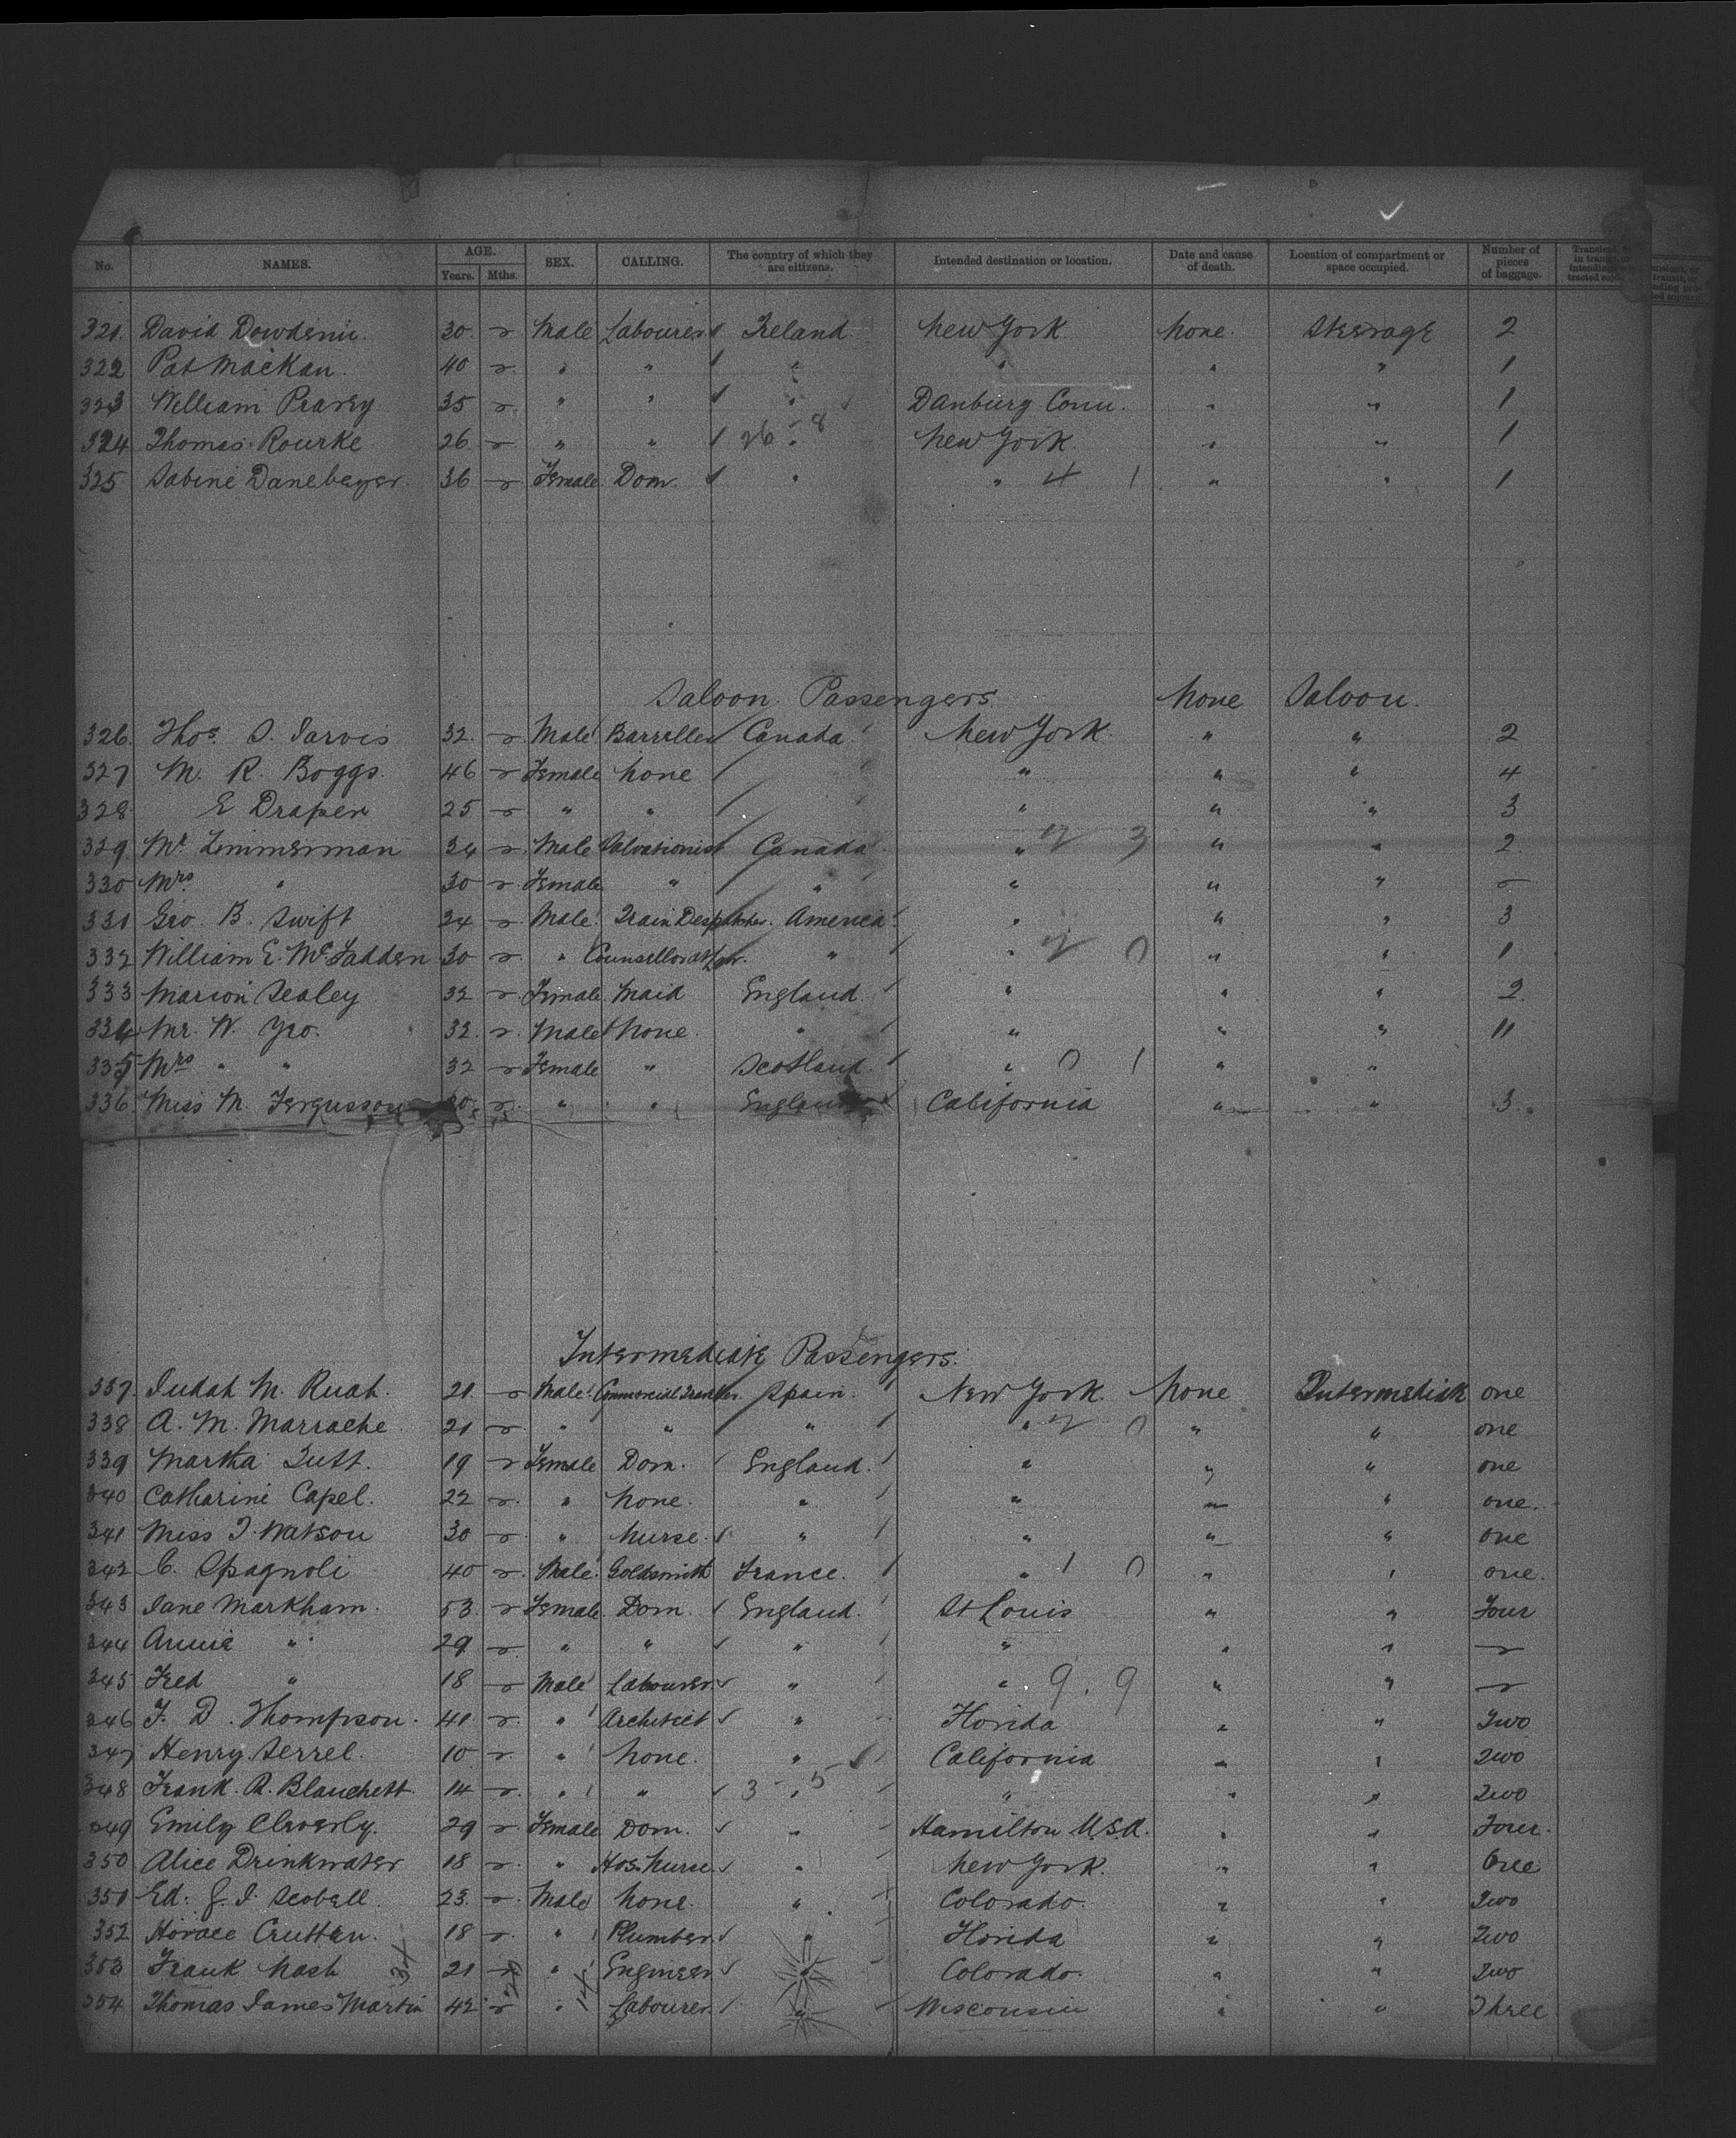 No. NAMES. AGE. Years. Mths. SEX. CALLING. The country of which they are citizens. Intended destination or location. Date and cause of death. Location of compartment or space occupied. Number of pieces of baggage.
321. David 30. Male Labourer Ireland New York None. Steerage 2
322 Pat Mackan. 40 " " " " " " 1
323 William Pravey 35 " " " Danbury Conn. " " 1
324 Thomas Rourke 26 " " 26 - 8 New York " " 1
325 Sabine Danebeyer 36 Female Dom. " " 4 1 " " 1
Saloon Passengers. None Saloon.
326. Thos. S. Jarvis 32. Male Canada New York. " " 2
327 M. R. Boggs. 46 Female None " " " 4
328 E Draper 25 " " " " " 3
329 Mr. Zimmerman 34 Male Salvationist Canada " 3 " " 2
330 Mrs " 30 Female " " " " "
331 Geo. B. Swift 24 Male Train Despatcher. America " " " 3
332 William E. McFadden 30 " Counsellor at Law. " " 0 " " 1
333 Marion Sealey 32 Female Maid England. " " " 2
334 Mr. W. Yeo. 32. Male None. " " " " 11
335 Mrs " " 32 Female " Scotland. " 0 1 " "
336. Miss M. Fergusson " " England California " " 3.
Intermediate Passengers.
337. Judah M. Ruah. 21. Male Commercial Traveller. Spain. New York. None Intermediate one
338 A. M. Marrache 21 " " " " 0 " " one
339 Martha Tutt. 19 Female Dom. England. " " " one
340 Catharine Capel. 22 " None. " " " " one.
341 Miss J. Watson 30 " Nurse. " " " " one
342 C. Spagnoli 40 Male Goldsmith France. " 1 0 " " one.
343 Jane Markham. 53. Female Dom. England. St Louis " " Four
344 Annie " 29 " " " " " "
345 Fred " 18 Male Labourer " " 9. 9 " "
346 F. D. Thompson. 41. " Architect " Florida " " Two
347 Henry Serrel. 10 " None. " California " " Two
348 Frank. R. Blanchett. 14 " " 3 - 5 " " " Two
349 Emily Cleverly. 29 Female Dom. " Hamilton U.S.A. " " Four.
350 Alice Drinkwater 18 " Hos. Nurse " New York. " " One
351 Ed. J. Scobell 23. Male None. " Colorado. " " Two
352 Horace Crutten. 18 " Plumber " Florida " " Two
353 Frank Nash 21 " Engineer " Colorado. " " Two
354 Thomas James Martin 42 " Labourer. " Wisconsin " " Three